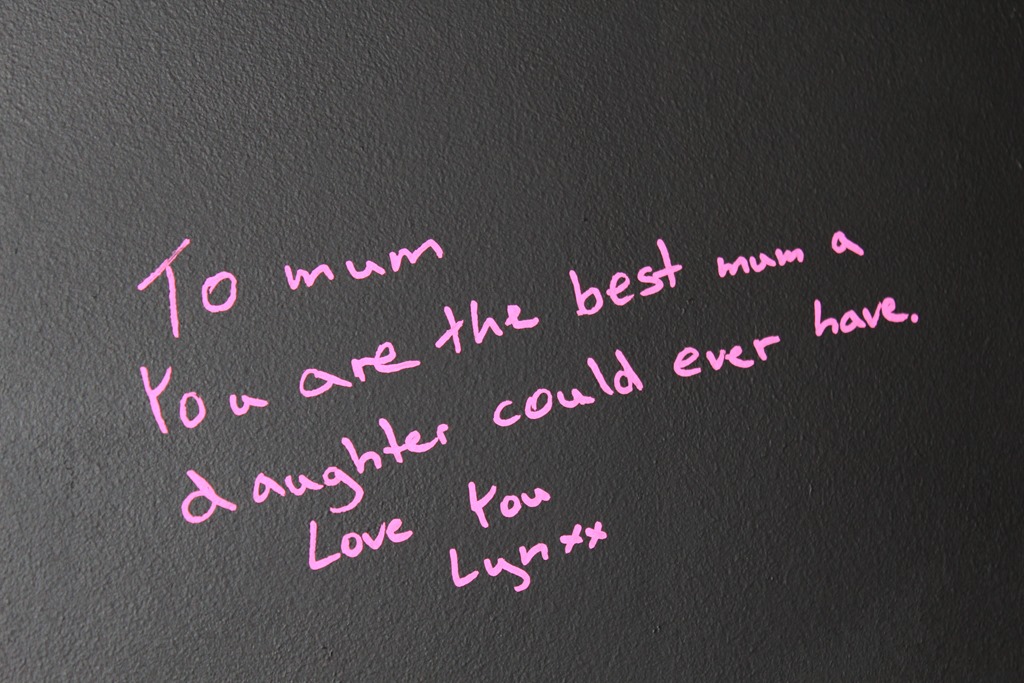 To mum
You are the best mum a
daughter could ever have.
Love You
Lyn xx